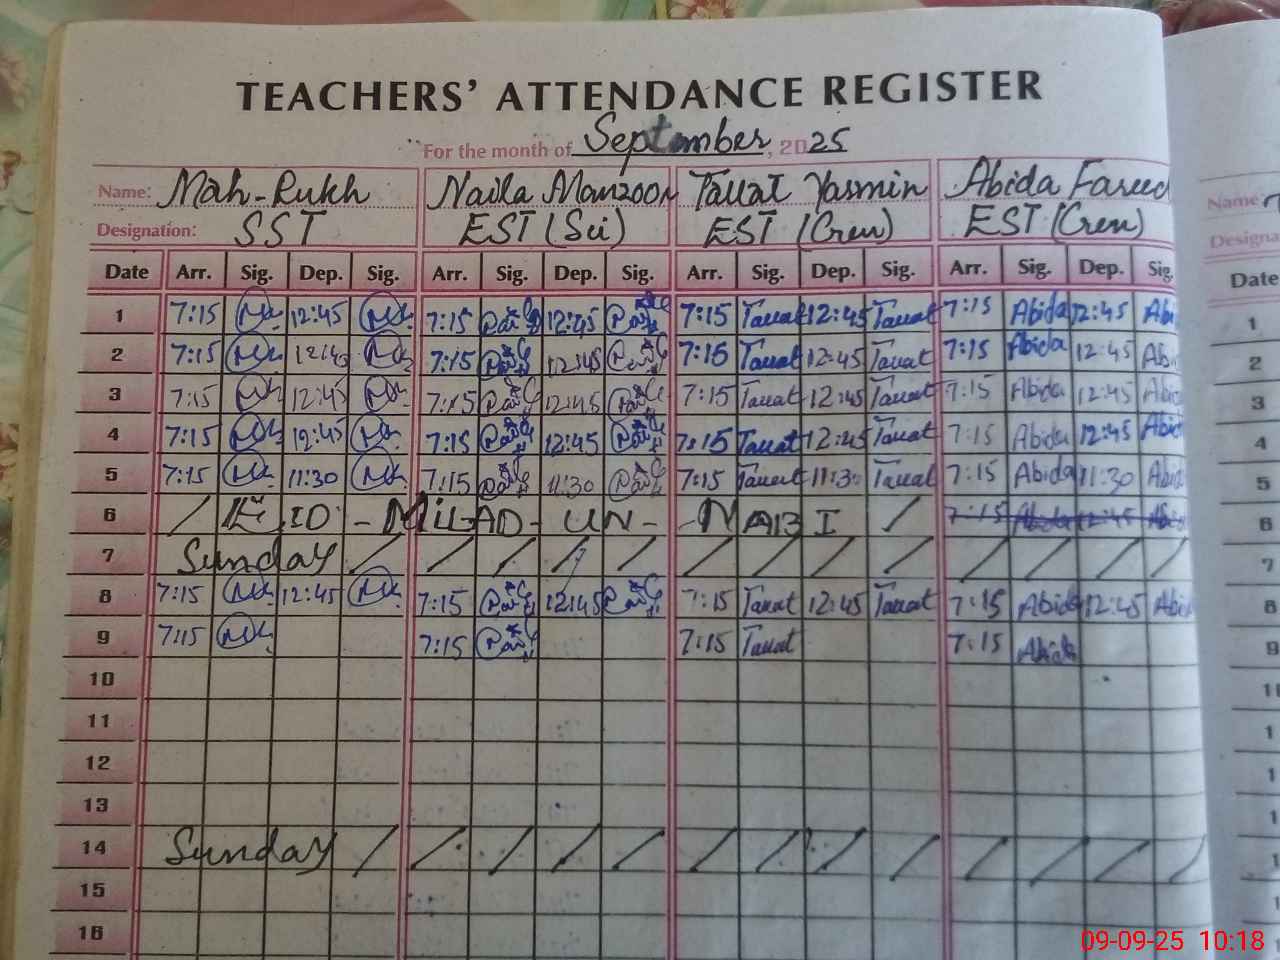 TEACHERS' ATTENDANCE REGISTER
For the month of September, 2025
Name: Mah-Rukh Naila Manzoor Tallat Yasmin Abida Fareed
Designation: SST EST (Sci) EST (Gen) EST (Gen)
Date Arr. Sig. Dep. Sig. Arr. Sig. Dep. Sig. Arr. Sig. Dep. Sig. Arr. Sig. Dep. Sig.
1 7:15 12:45 7:15 12:45 7:15 Tallat 12:45 Tallat 7:15 Abida 12:45 Abi
2 7:15 12:45 7:15 12:45 7:15 Tallat 12:45 Tallat 7:15 Abida 12:45 Abi
3 7:15 12:45 7:15 12:45 7:15 Tallat 12:45 Tallat 7:15 Abida 12:45 Abid
4 7:15 12:45 7:15 12:45 7:15 Tallat 12:45 Tallat 7:15 Abida 12:45 Abid
5 7:15 11:30 7:15 11:30 7:15 Tallat 11:30 Tallat 7:15 Abida 11:30 Abid
6 / EID - MILAD - UN - NABI / 7:15 Abida 12:45 Abid
7 Sunday / / / / / / / / / / / / /
8 7:15 12:45 7:15 12:45 7:15 Tallat 12:45 Tallat 7:15 Abida 12:45 Abid
9 7:15 7:15 7:15 Tallat 7:15 Abida
10
11
12
13
14 Sunday / / / / / / / / / / / / /
15
16
Name
Designa
Date
1
2
3
4
5
6
7
8
9
09-09-25 10:18